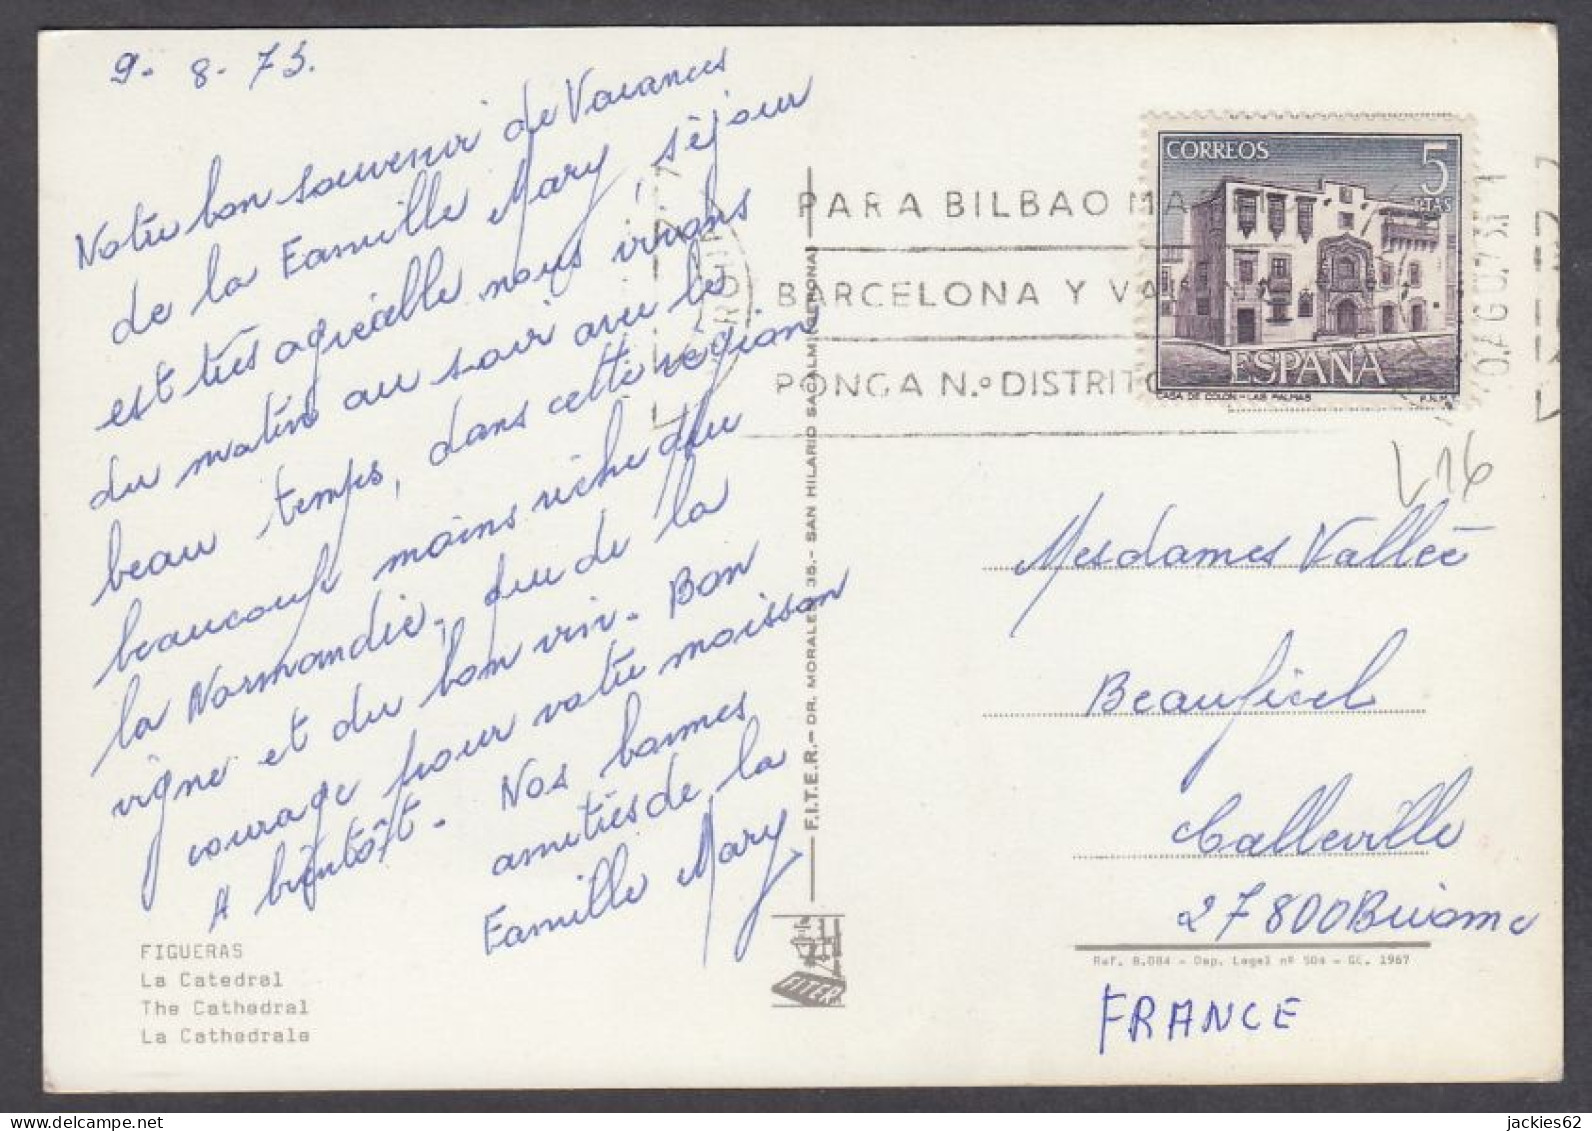 9. 8. 73.
Notre bon souvenir de Vacances
de la Famille Mary, séjour
est très agréable nous vivons
du matin au soir avec le
beau temps, dans cette région
beaucoup moins riche que
la Normandie, que de la
vigne et du bon vin. Bon
courage pour votre moisson
A bientôt. Nos bonnes
amitiés de la
Famille Mary
FIGUERAS
La Catedral
The Cathedral
La Cathedrale
F.I.T.E.R.- DR. MORALES 35.- SAN HILARIO SACALM (NACIONAL)
FITER
PARA BILBAO MA
BARCELONA Y VA
PONGA N.º DISTRITO
CORREOS
5
PTAS
ESPAÑA
CASA DE COLON - LAS PALMAS
F.N.M.T.
L16
Mesdames Vallée
Beauficel
Calleville
27800 Brionne
Ref. 8.084 - Dep. Legal nº 504 - GE. 1967
FRANCE
jackies62